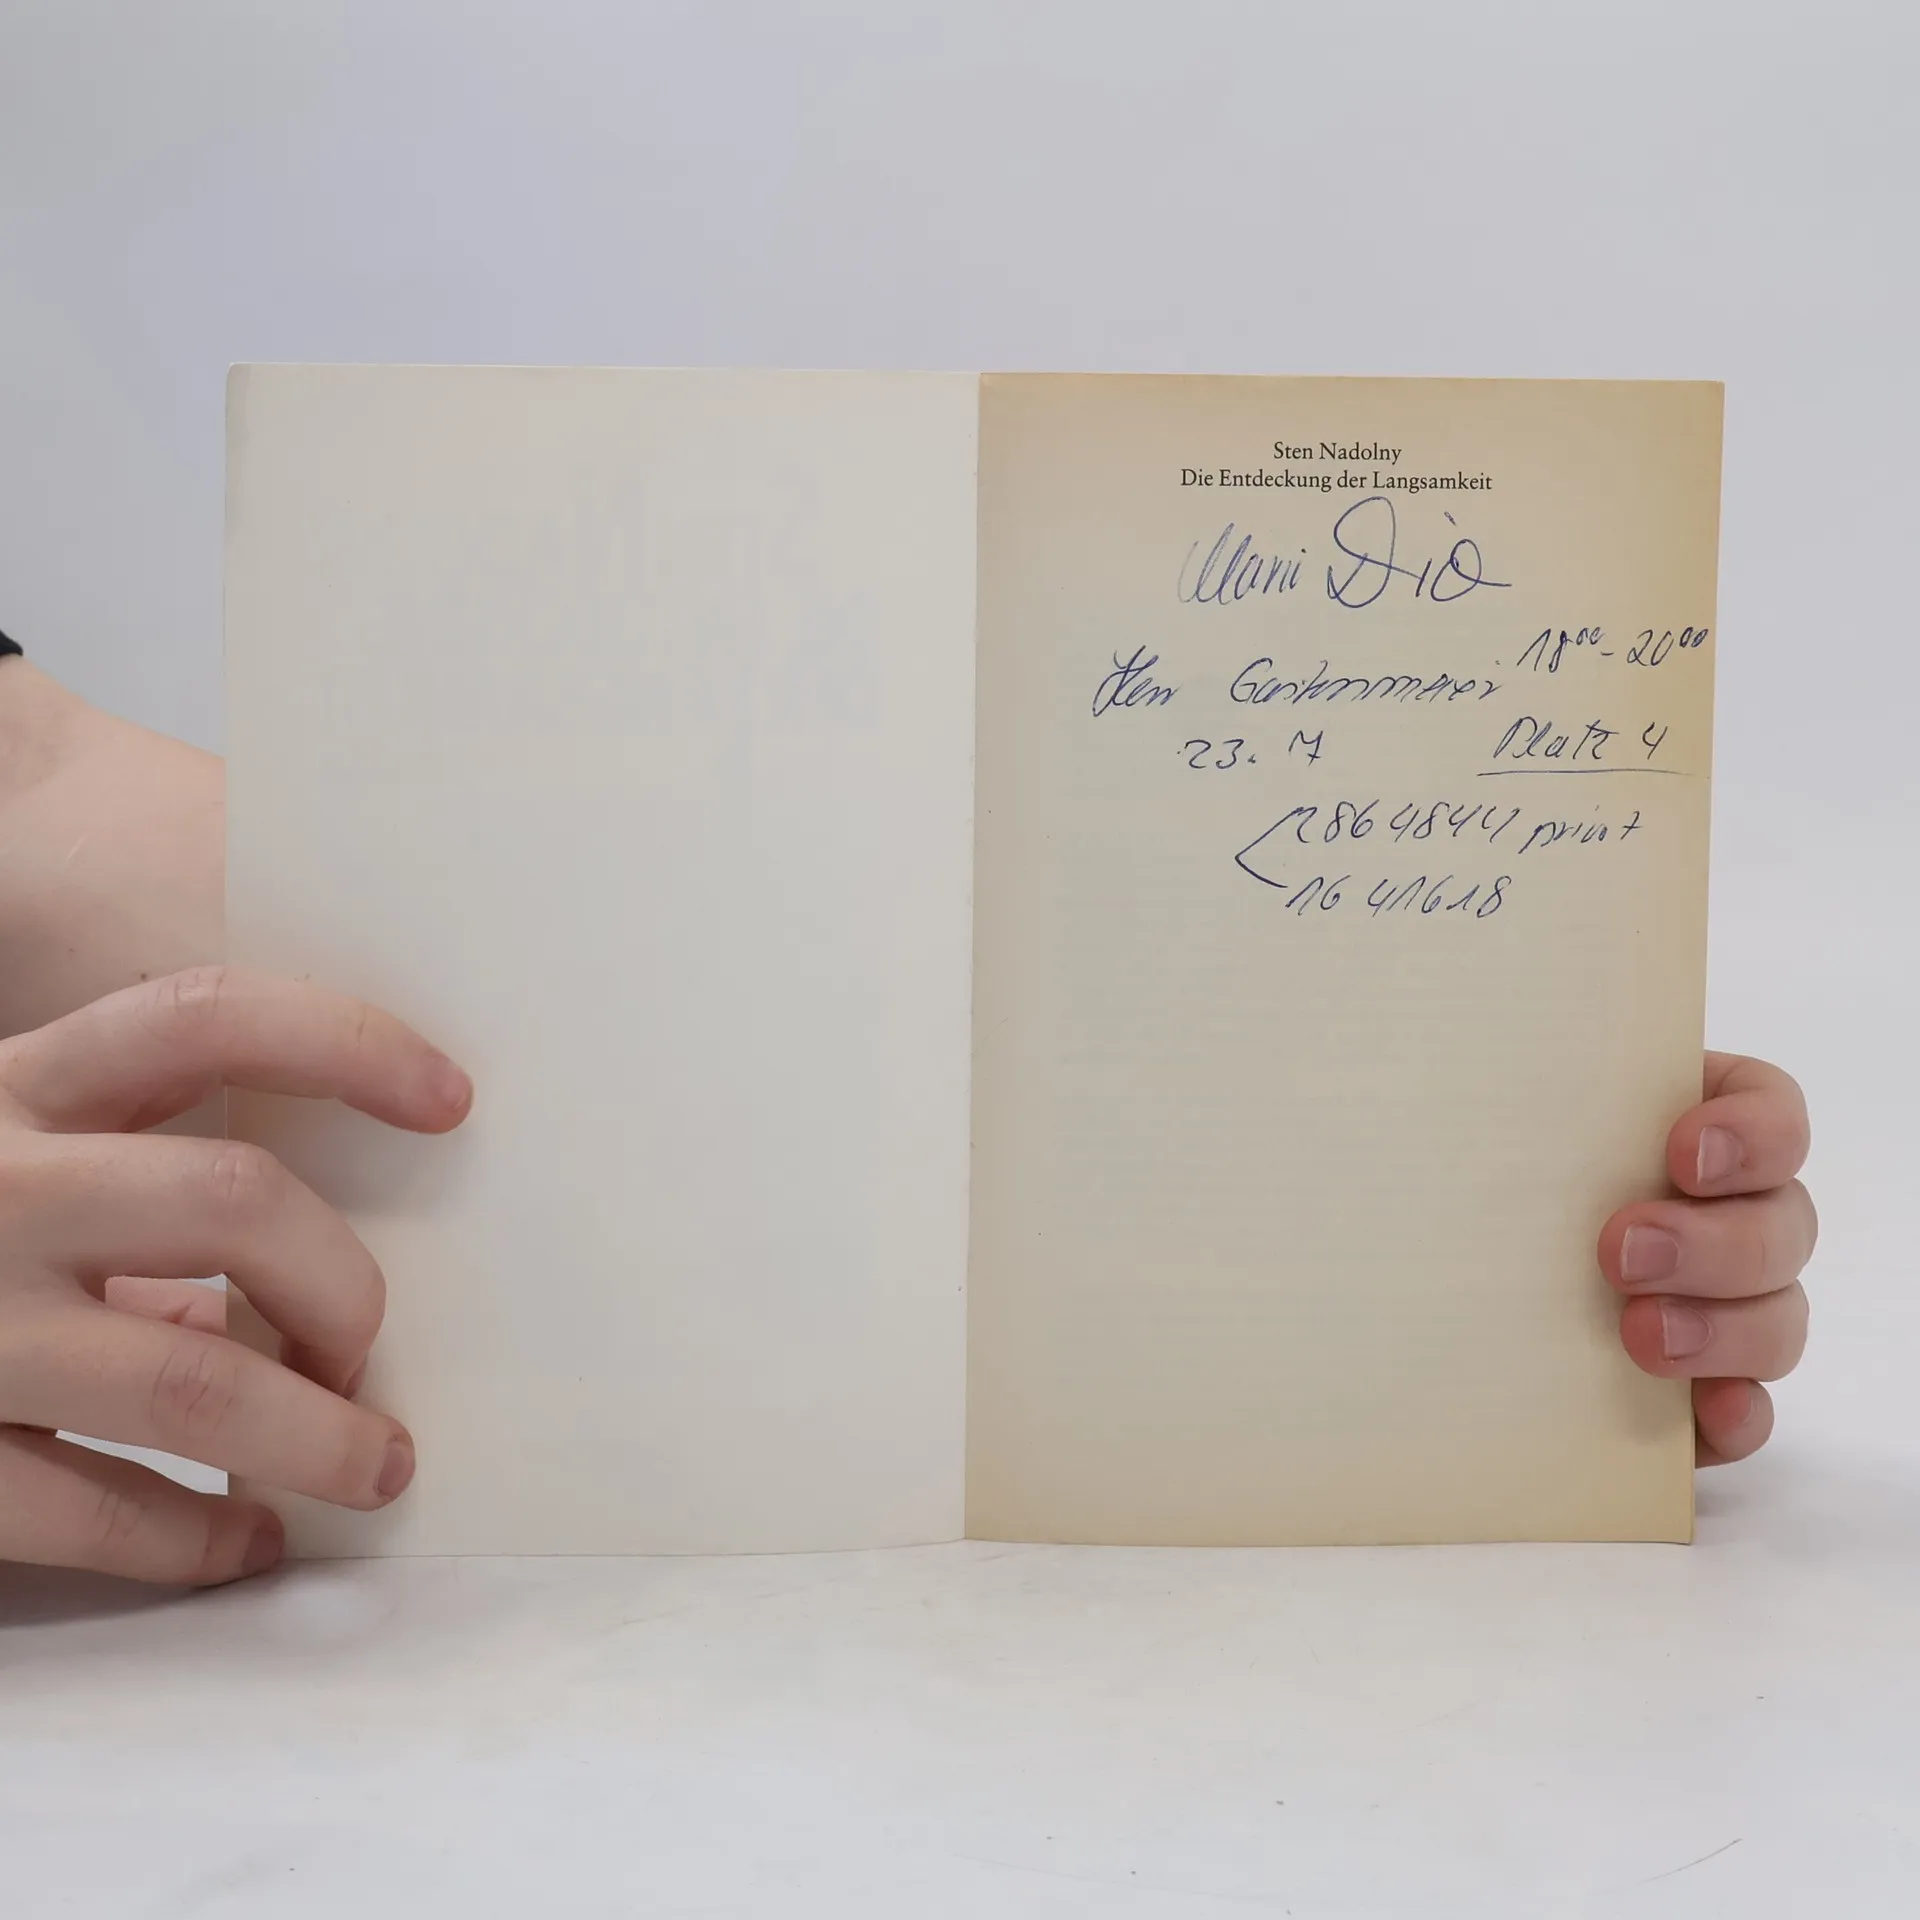 Sten Nadolny
Die Entdeckung der Langsamkeit
Mami Dio
Herr 18⁰⁰ - 20⁰⁰
23. 7 Platz 4
2864844 privat
16 41618